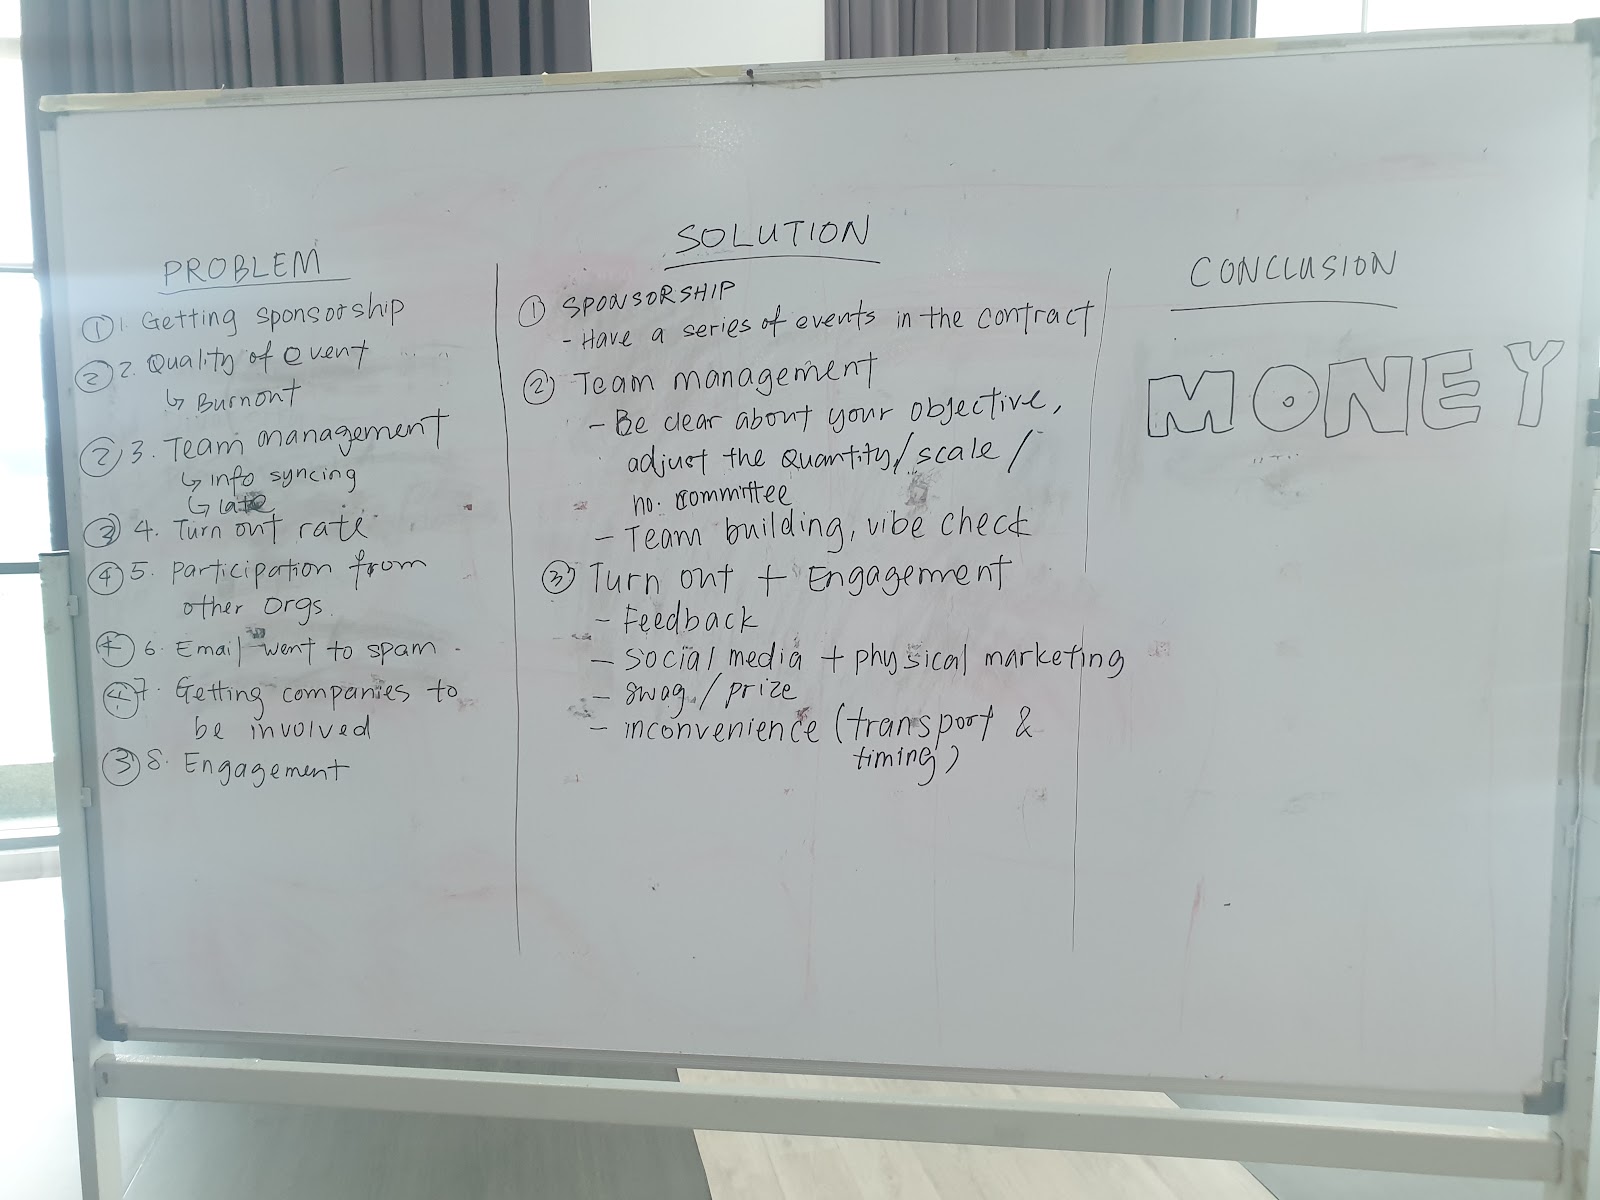 PROBLEM
① 1. Getting sponsorship
② 2. Quality of event
↳ Burnout
② 3. Team management
↳ info syncing
↳ late
③ 4. Turn out rate
④ 5. Participation from
other orgs.
④ 6. Email went to spam
④ 7. Getting companies to
be involved
③ 8. Engagement
SOLUTION
① SPONSORSHIP
- Have a series of events in the contract
② Team management
- Be clear about your objective,
adjust the quantity/scale/
no. committee
- Team building, vibe check
③ Turn out + Engagement
- Feedback
- social media + physical marketing
- swag/prize
- inconvenience (transport &
timing)
CONCLUSION
MONEY